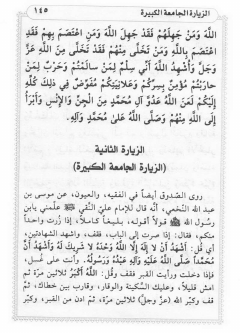 الزيارة الجامعة الكبيرة ١٤٥
اللَّهُ وَمَنْ جَهِلَهُمْ فَقَدْ جَهِلَ اللَّهَ وَمَنِ اعْتَصَمَ بِهِمْ فَقَدِ
اعْتَصَمَ بِاللَّهِ وَمَنْ تَخَلَّى مِنْهُمْ فَقَدْ تَخَلَّى مِنَ اللَّهِ عَزَّ
وَجَلَّ وَأُشْهِدُ اللَّهَ أَنِّي سِلْمٌ لِمَنْ سَالَمْتُمْ وَحَرْبٌ لِمَنْ
حَارَبْتُمْ مُؤْمِنٌ بِسِرِّكُمْ وَعَلَانِيَتِكُمْ مُفَوِّضٌ فِي ذَلِكَ كُلِّهِ
إِلَيْكُمْ لَعَنَ اللَّهُ عَدُوَّ آلِ مُحَمَّدٍ مِنَ الْجِنِّ وَالْإِنْسِ وَأَبْرَأُ
إِلَى اللَّهِ مِنْهُمْ وَصَلَّى اللَّهُ عَلَى مُحَمَّدٍ وَآلِهِ.
الزيارة الثانية
(الزيارة الجامعة الكبيرة)
روى الصدوق أيضاً في الفقيه، والعيون، عن موسى بن
عبد الله النخعي، أنه قال للإمام علي النقي علمني يابن
رسول الله قولاً أقوله، بليغاً كاملاً، إذا زرت واحداً
منكم، فقال: إذا صرت إلى الباب، فقف، واشهد الشهادتين،
أي قُل: أَشْهَدُ أَنْ لا إِلَهَ إِلَّا اللَّهُ وَحْدَهُ لا شَرِيكَ لَهُ وَأَشْهَدُ أَنَّ
مُحَمَّداً صَلَّى اللَّهُ عَلَيْهِ وَآلِهِ عَبْدُهُ وَرَسُولُهُ. وأنت على غُسل،
فإذا دخلت ورأيت القبر فقف وقُل: اللَّهُ أَكْبَرُ ثلاثين مرّة، ثم
امش قليلاً، وعليك السكينة والوقار، وقارب بين خطاك، ثمّ
قف وكبّر الله (عزّ وجلّ) ثلاثين مرّة، ثمّ ادن من القبر، وكبّر